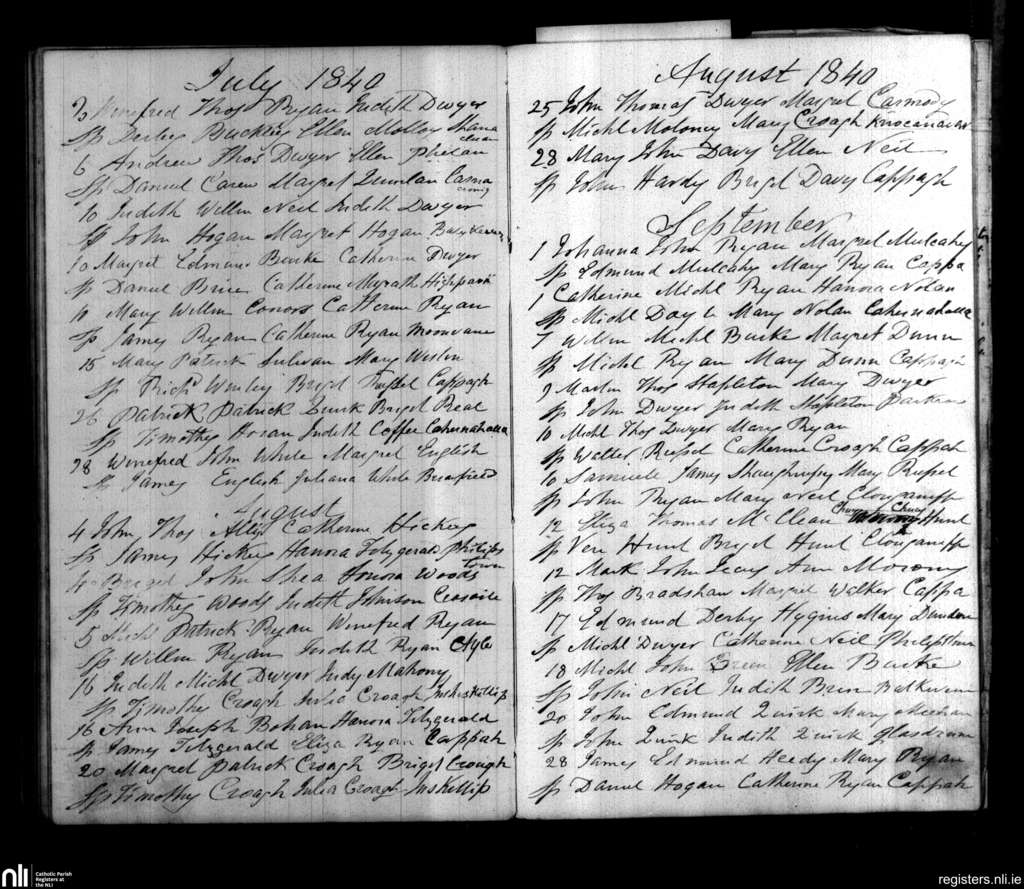 July 1840
3 Winefred Thos Ryan Judith Dwyer
Sp Darby Buckley Ellen Molloy Shana
6 Andrew Thos Dwyer Ellen Phelan
Sp Daniel Carew Margret Quinlan
10 Judith Willm Neil Judith Dwyer
Sp John Hogan Margret Hogan
10 Margret Edmund Burke Catherine Dwyer
Sp Daniel Brien Catherine Mgrath Highpark
11 Mary Willm Conors Catherine Ryan
Sp James Ryan Catherine Ryan Moonvane
15 Mary Patrick Sulivan Mary
Sp Richd Brigd Russel Cappagh
26 Patrick Patrick Quirk Brigd Real
Sp Timothy Horan Judith Coffee Cahernahalla
28 Winefred John White Margret English
Sp James English Juliana White
August
4 John Thos Catherine Hickey
Sp James Hickey Hanora Fitzgerald Philips
town
4 John Shea Honora Woods
Sp Timothy Woods Judith Johnson
5 Patrick Ryan Winefred Ryan
Sp Willm Ryan Judith Ryan Clyle
16 Judith Michl Dwyer Judy Mahony
Sp Timothy Croagh Julia Croagh Inskillip
16 Ann Joseph Bohan Hanora Fitzgerald
Sp James Fitzgerald Eliza Ryan Cappah
20 Margret Patrick Croagh Briget Croagh
Sp Timothy Croagh Julia Croagh Inskillip
August 1840
25 John Thomas Dwyer Margret Carmody
Sp Michl Moloney Mary Croagh
28 Mary John Davy Ellen Neil
Sp John Hardy Brigd Davy Cappagh
September
1 Johanna John Ryan Margret Mulcahy
Sp Edmund Mulcahy Mary Ryan Cappa
1 Catherine Michl Ryan Hanora Nolan
Sp Michl Day & Mary Nolan Cahernahalla
7 Willm Michl Burke Margret Dunn
Sp Michl Ryan Mary Dunn Cappagh
9 Martin Thos Stapleton Mary Dwyer
Sp John Dwyer Judith Stapleton
10 Michl Thos Dwyer Mary Ryan
Sp Walter Russel Catherine Croagh Cappah
10 Samuele James Shaughnessy Mary Russel
Sp John Ryan Mary Neil Clonganuff
12 Eliza Thomas McClean Hunt
Sp Vere Hunt Brigd Hunt Clonganuff
12 Mark John Ann Morony
Sp Thos Bradshaw Margret Walker Cappa
17 Edmund Derby Hyggins Mary Dundon
Sp Michl Dwyer Catherine Neil Philipstown
18 Michl John Green Ellen Burke
Sp John Neil Judith Brien
20 John Edmund Quirk Mary Meehan
Sp John Quirk Judith Quirk Glasdrum
28 James Edmund Heedy Mary Ryan
Sp Daniel Hogan Catherine Ryan Cappah
nli
Catholic Parish
Registers at
the NLI
registers.nli.ie